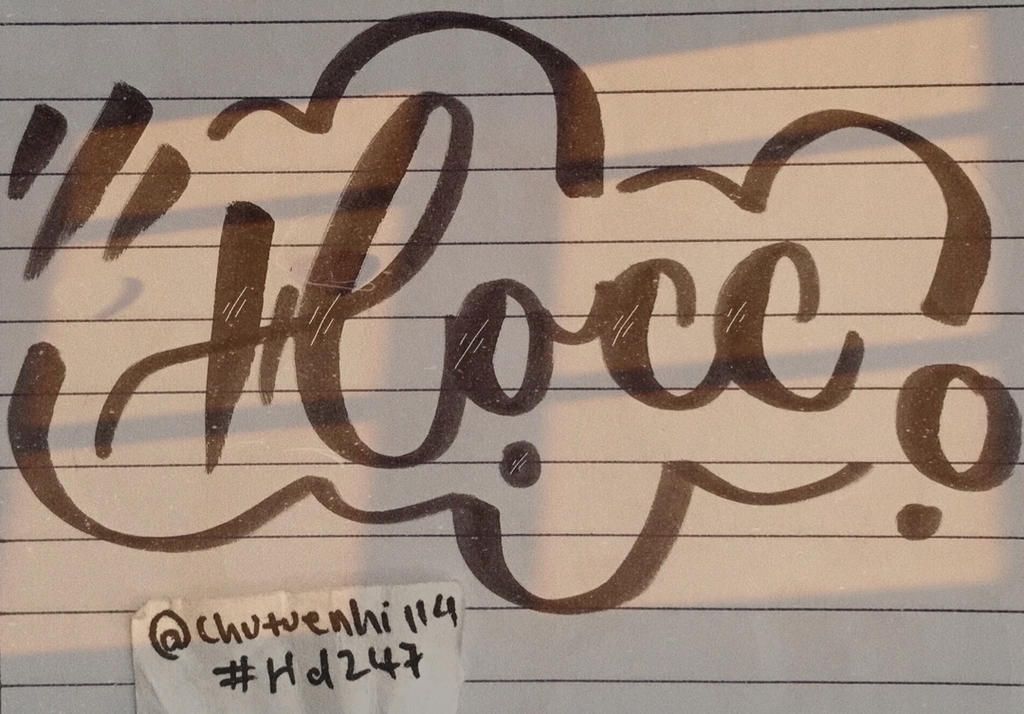 Họcc
@chutuenhi 114
#Hd247